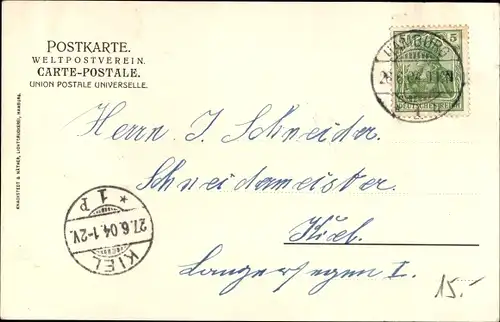 POSTKARTE.
WELTPOSTVEREIN.
CARTE-POSTALE.
UNION POSTALE UNIVERSELLE.
KNACKSTEDT & NÄTHER, LICHTDRUCKEREI, HAMBURG.
5
HAMBURG
DEUTSCHES REICH
Herrn J. Schneider.
Schneidermeister.
Kiel.
I.
KIEL
27.6.04.1-2V.
* 1 P
15.-